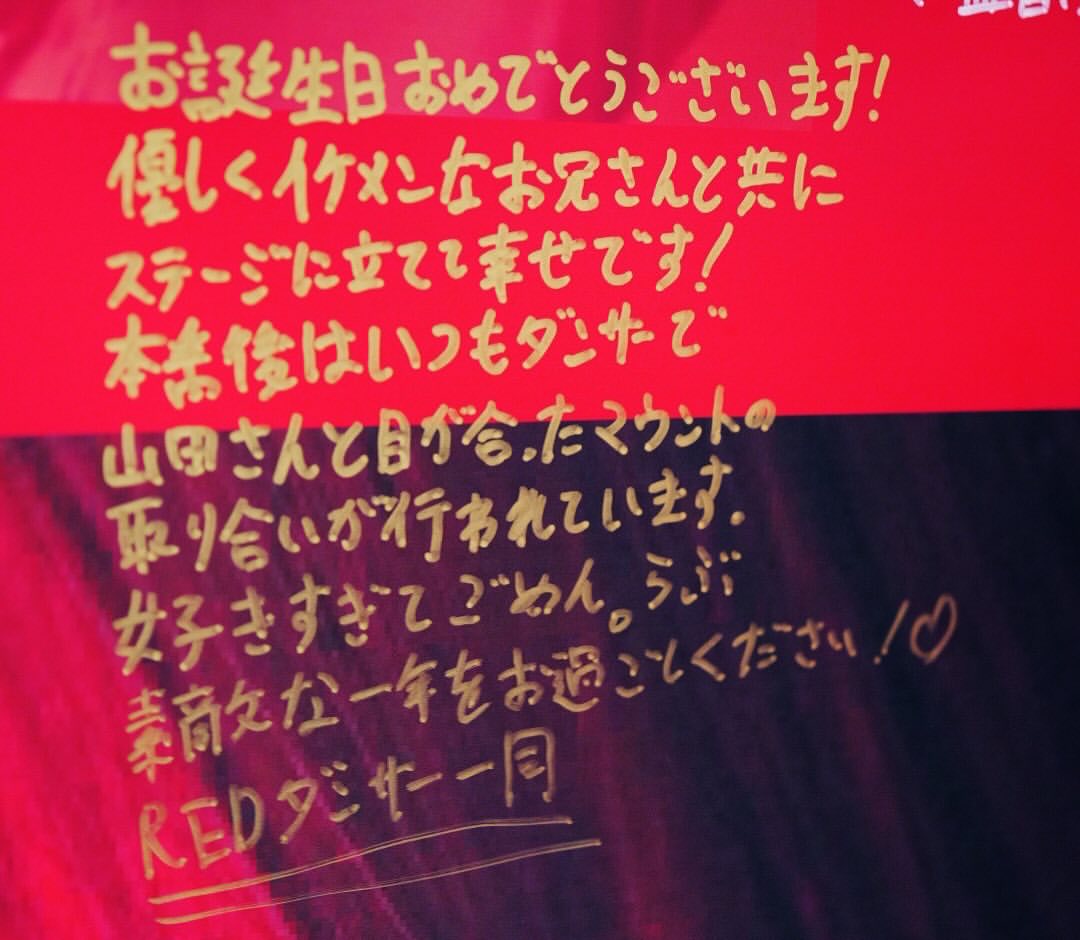 お誕生日おめでとうございます!
優しくイケメンなお兄さんと共に
ステージに立てて幸せです!
本番後はいつもダンサーで
山田さんと目が合ったマウントの
取り合いが行われています.
女子きすぎてごめん。らぶ
素敵な一年をお過ごしください!♡
REDダンサー一同